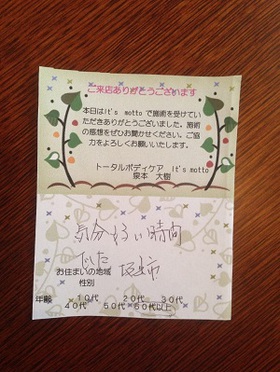 ご来店ありがとうございます
本日はit's mottoで施術を受けてい
ただきありがとうございました。施術
の感想をぜひお聞かせください。ご協
力をよろしくお願いいたします。
トータルボディケア it's motto
泉本 大樹
気分よい時間
でした
お住まいの地域
性別
年齢 10代 20代 30代
40代 50代 60代以上